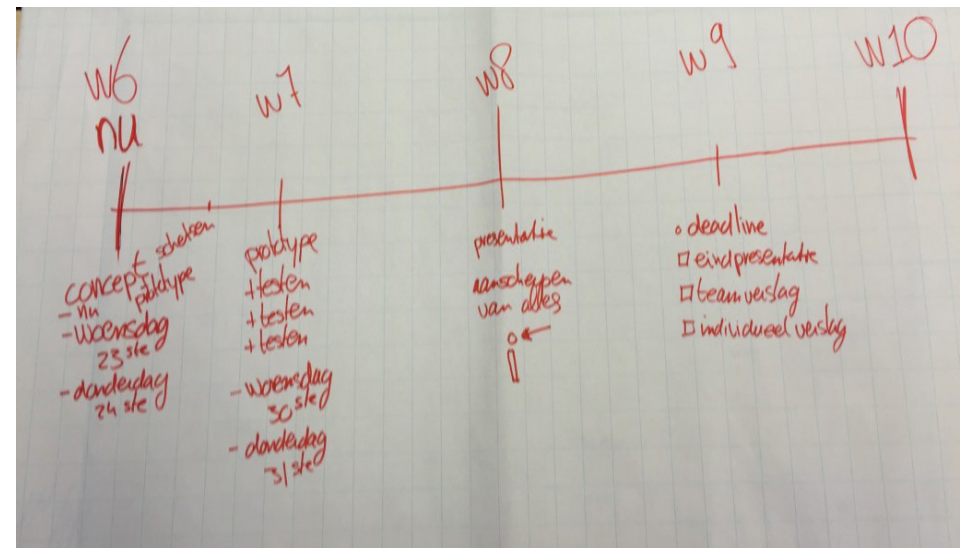 w6
nu
w7
w8
w9
w10
concept
schetsen
prototype
- nu
- woensdag
23 ste
- donderdag
24 ste
prototype
+ testen
+ testen
+ testen
- woensdag
30 ste
- donderdag
31 ste
presentatie
aanscherpen
van alles
deadline
eindpresentatie
teamverslag
individueel verslag